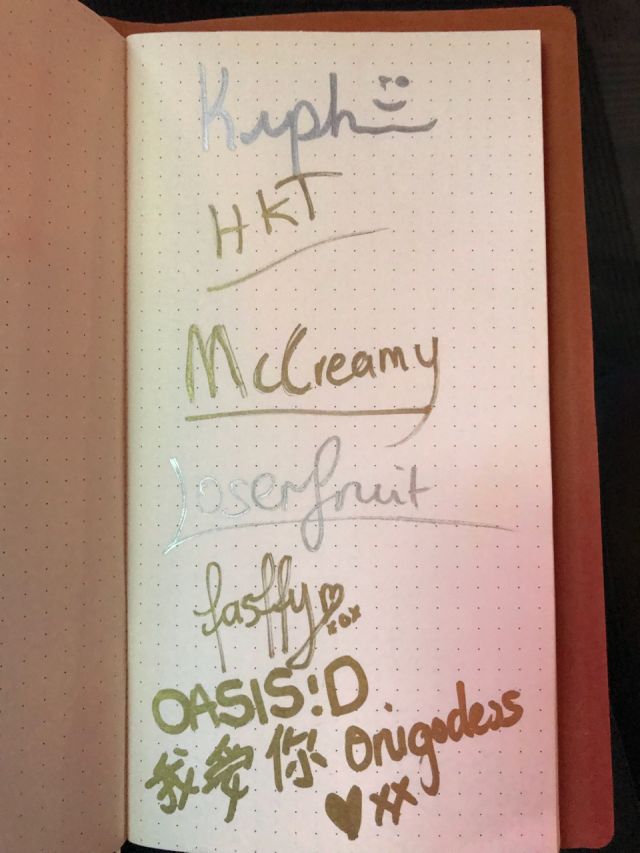 Kyph
HKT
McCreamy
Loserfruit
fasffy xox
OASIS!D
我爱你 Onigodess
xx